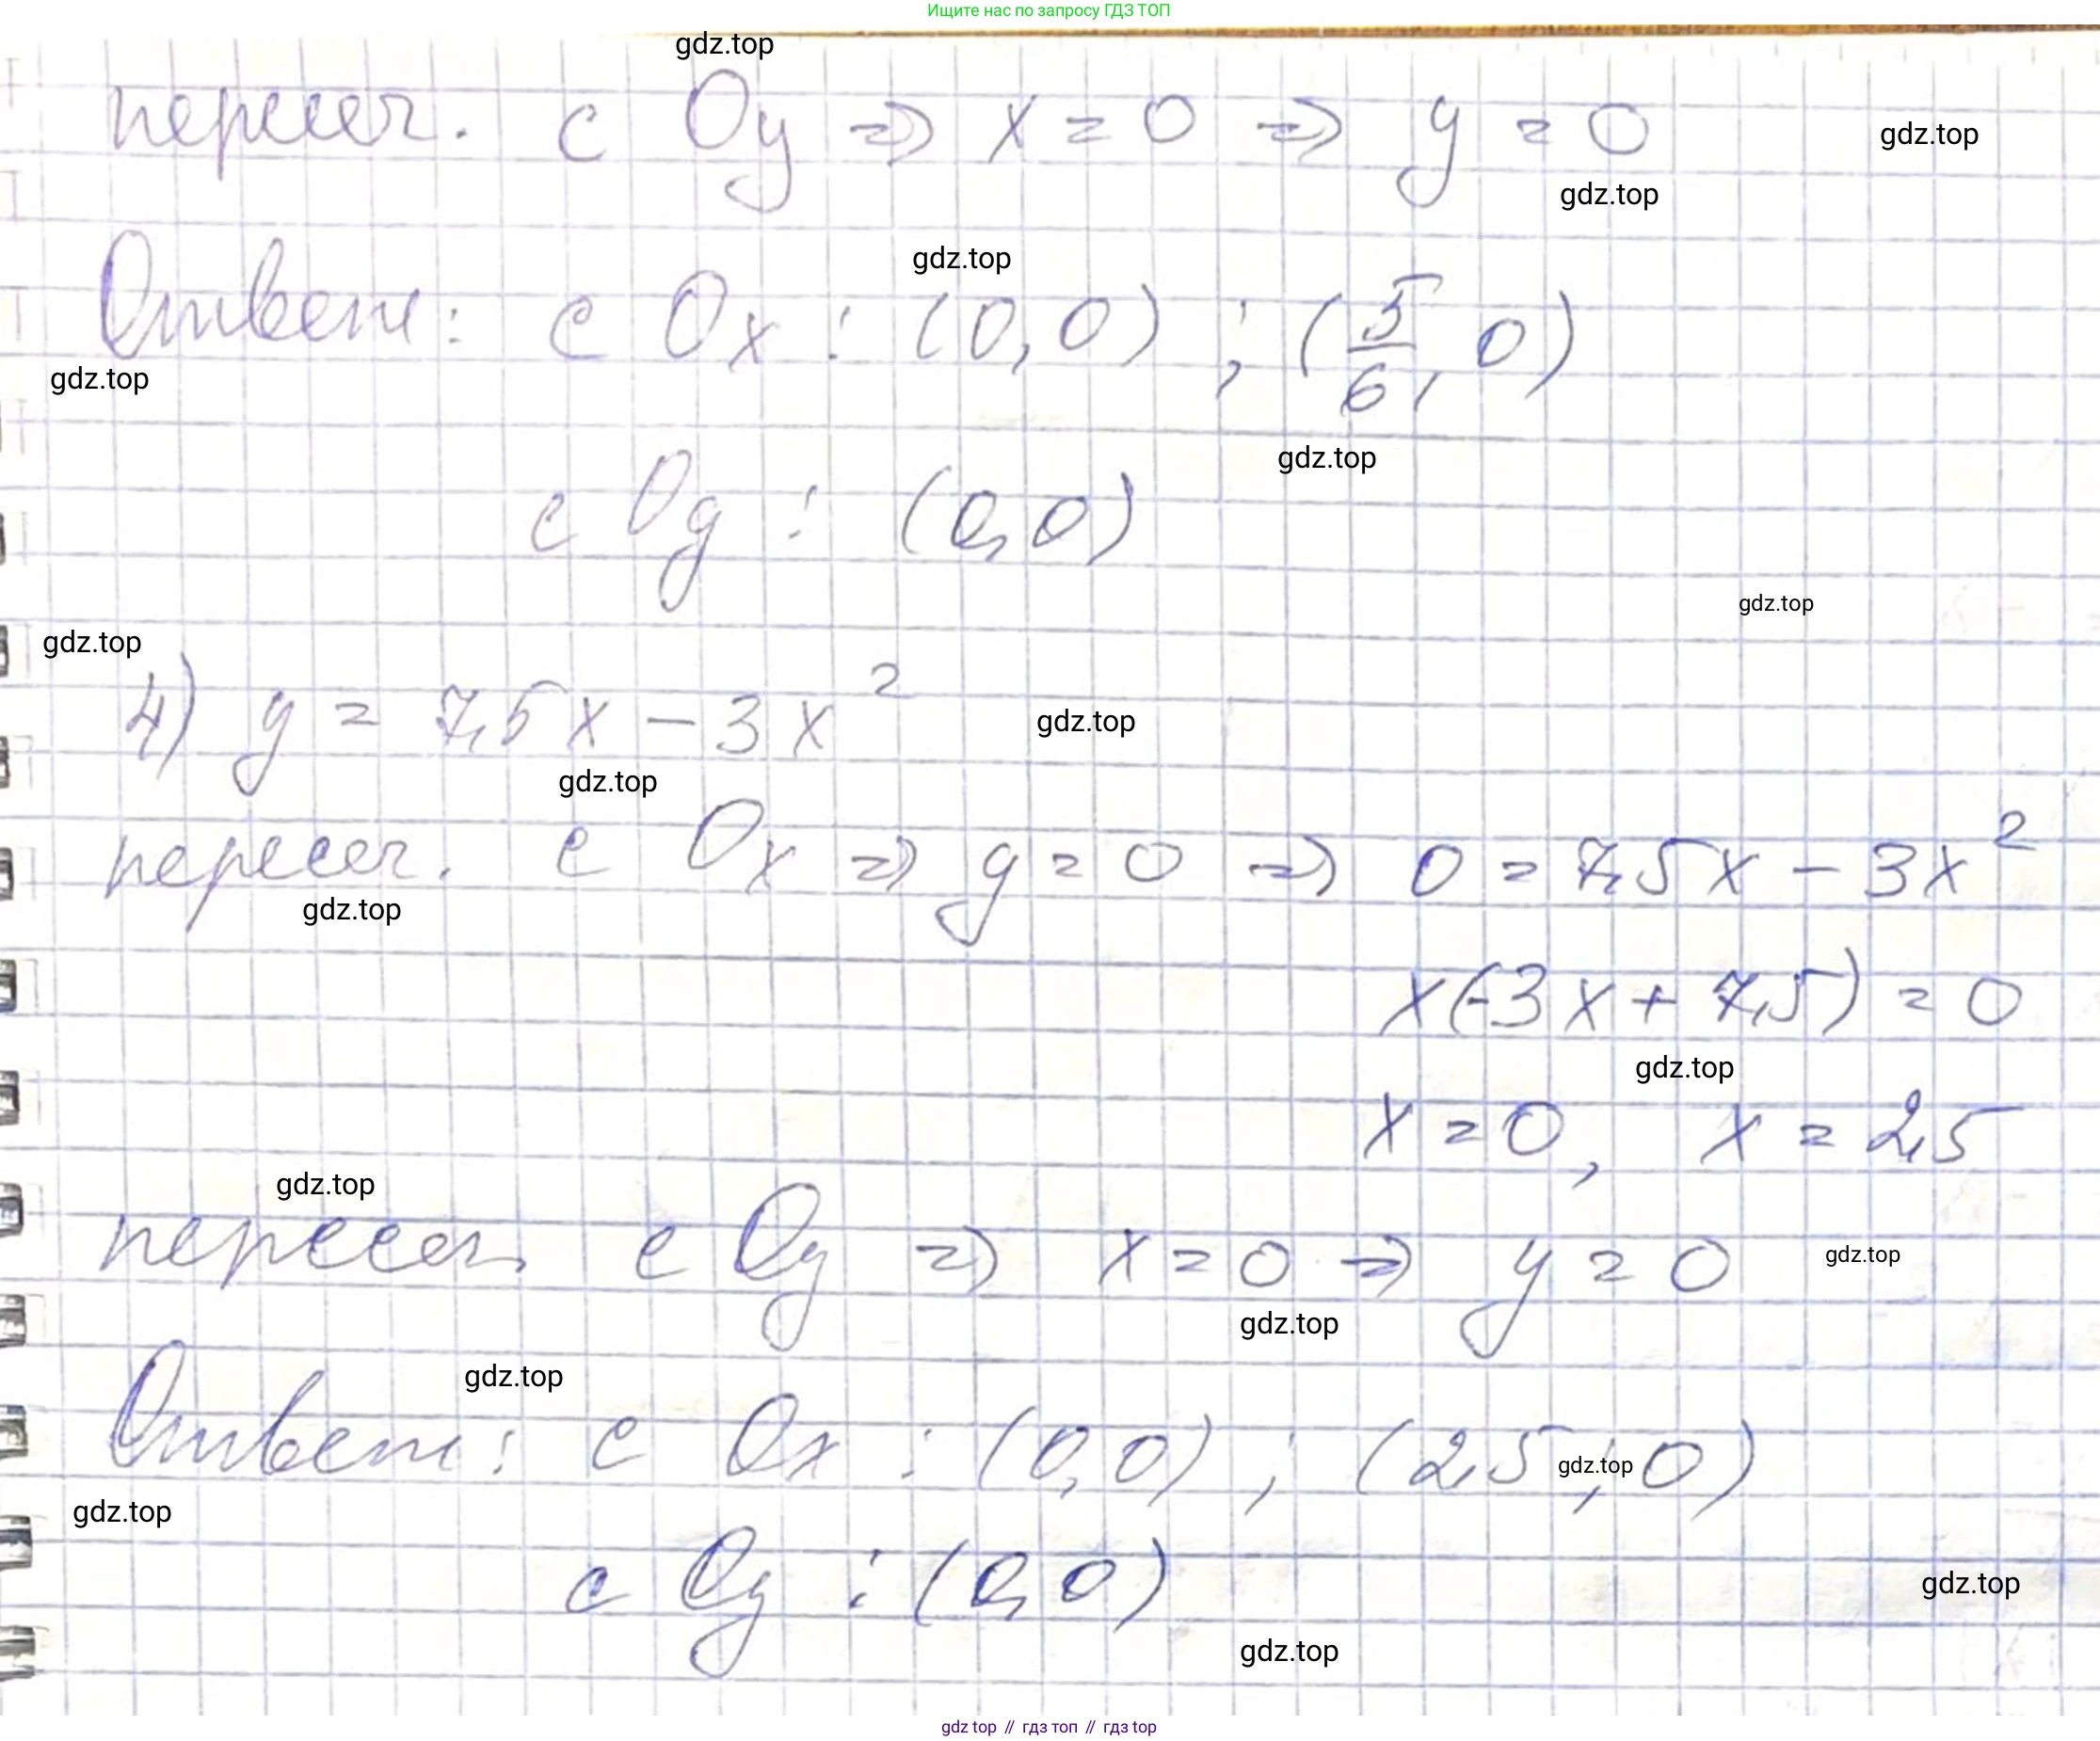 Ищите нас по запросу ГДЗ ТОП
gdz.top
пересеч. с Oy => x = 0 => y = 0
gdz.top
gdz.top
gdz.top
Ответ: с Ox : (0,0) ; (5/6, 0)
gdz.top
gdz.top
с Oy : (0,0)
gdz.top
gdz.top
4) y = 7,5x - 3x²
gdz.top
gdz.top
пересеч. с Ox => y = 0 => 0 = 7,5x - 3x²
gdz.top
x(-3x + 7,5) = 0
gdz.top
x = 0, x = 2,5
gdz.top
пересеч. с Oy => x = 0 => y = 0
gdz.top
gdz.top
gdz.top
Ответ: с Ox : (0,0) ; (2,5 ; 0)
gdz.top
gdz.top
с Oy : (0,0)
gdz.top
gdz.top
gdz top // гдз топ // гдз top